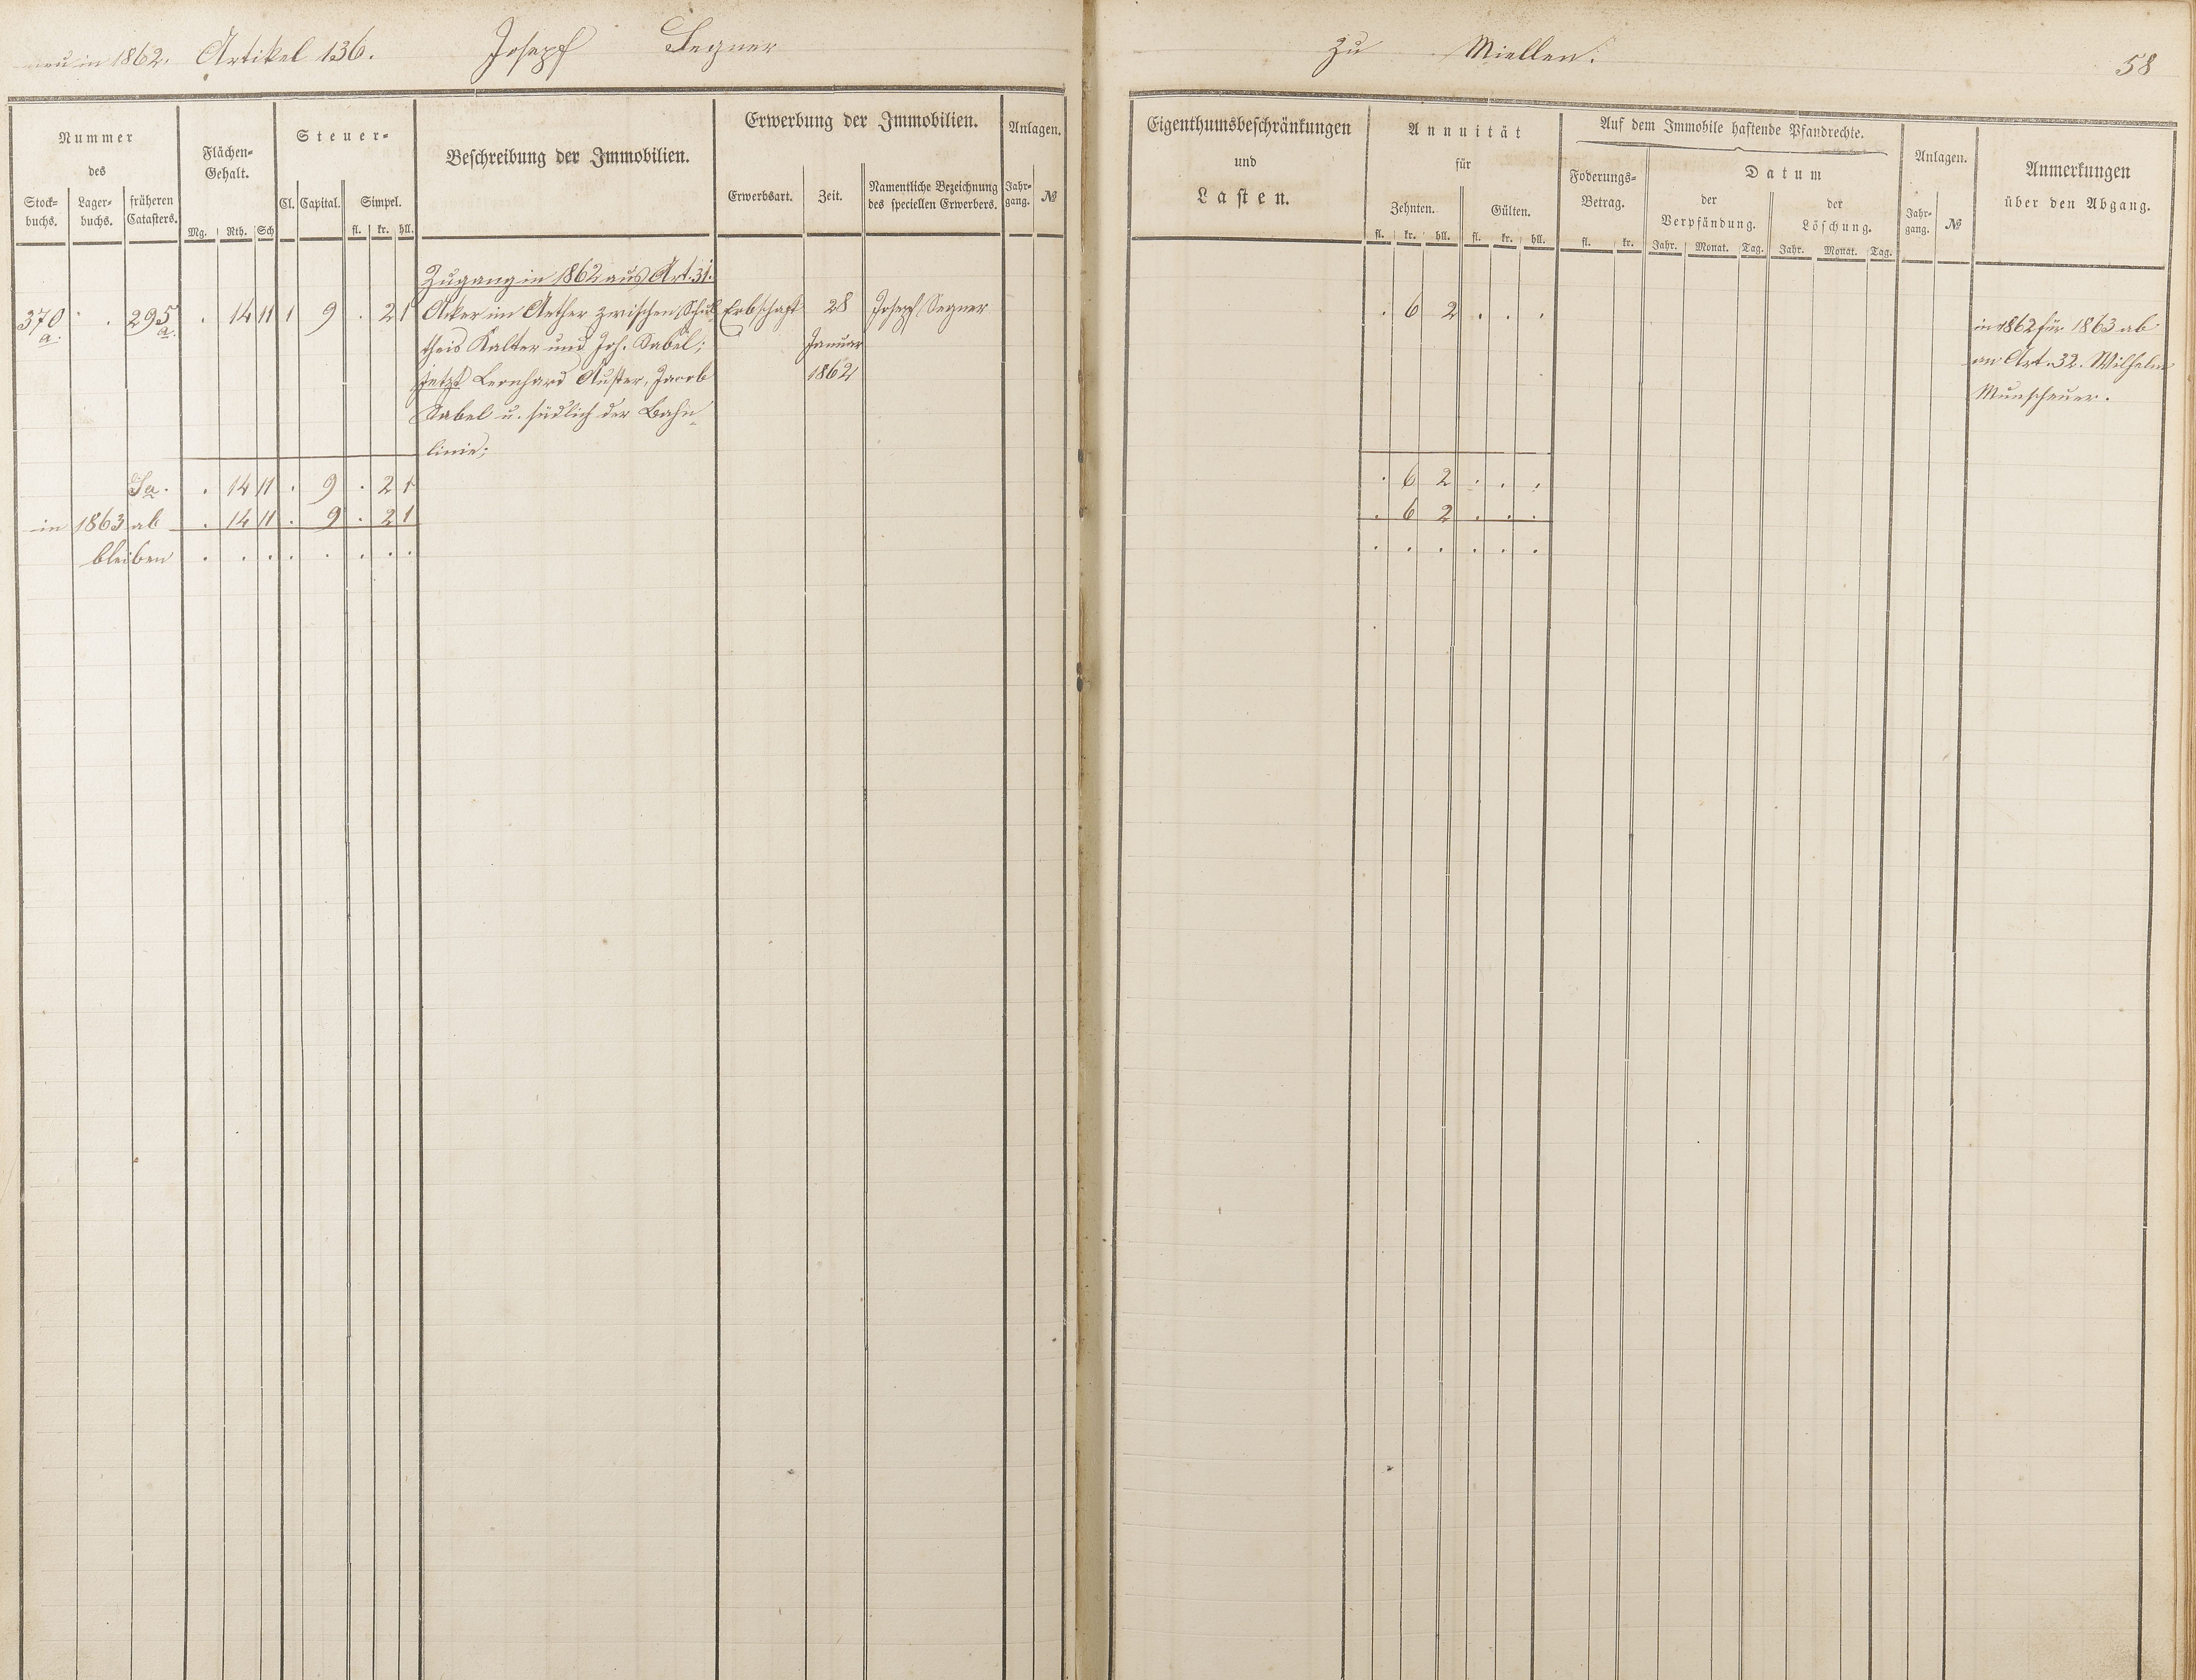 neu in 1862. Artikel 136. Joseph Segner zu Miellen. 58
Nummer
des
Stock-
buchs.
Lager-
buchs.
früheren
Catasters.
Flächen-
Gehalt.
Mg. Rth. Sch
Steuer-
Cl. Capital. Simpel.
fl. kr. hll.
Beschreibung der Immobilien.
Erwerbung der Immobilien.
Erwerbsart. Zeit.
Namentliche Bezeichnung
des speciellen Erwerbers.
Anlagen.
Jahr-
gang. №
Eigenthumsbeschränkungen
und
Lasten.
Annuität
für
Zehnten. Gülten.
fl. kr. hll. fl. kr. hll.
Auf dem Immobile haftende Pfandrechte.
Foderungs-
Betrag.
fl. kr.
Datum
der
Verpfändung.
Jahr. Monat. Tag.
der
Löschung.
Jahr. Monat. Tag.
Anlagen.
Jahr-
gang. №
Anmerkungen
über den Abgang.
Zugang in 1862 aus Art. 31.
370 a. . . 295 a. . 14 11 1 9 . 2 1 Acker im Aether zwischen Schul- Erbschaft 28 Joseph Segner . 6 2 . . .
theis Kalter und Joh. Sabel; Januar
jetzt Leonhard Auster, Jacob 1862
Sabel u. südlich der Bahn-
linie;
in 1862 für 1863 ab
an Art. 32. Wilhelm
Munscheuer.
Sa. . 14 11 . 9 . 2 1 . 6 2 . . .
in 1863 ab . 14 11 . 9 . 2 1 . 6 2 . . .
bleiben . . . . . . . . . . . . . .